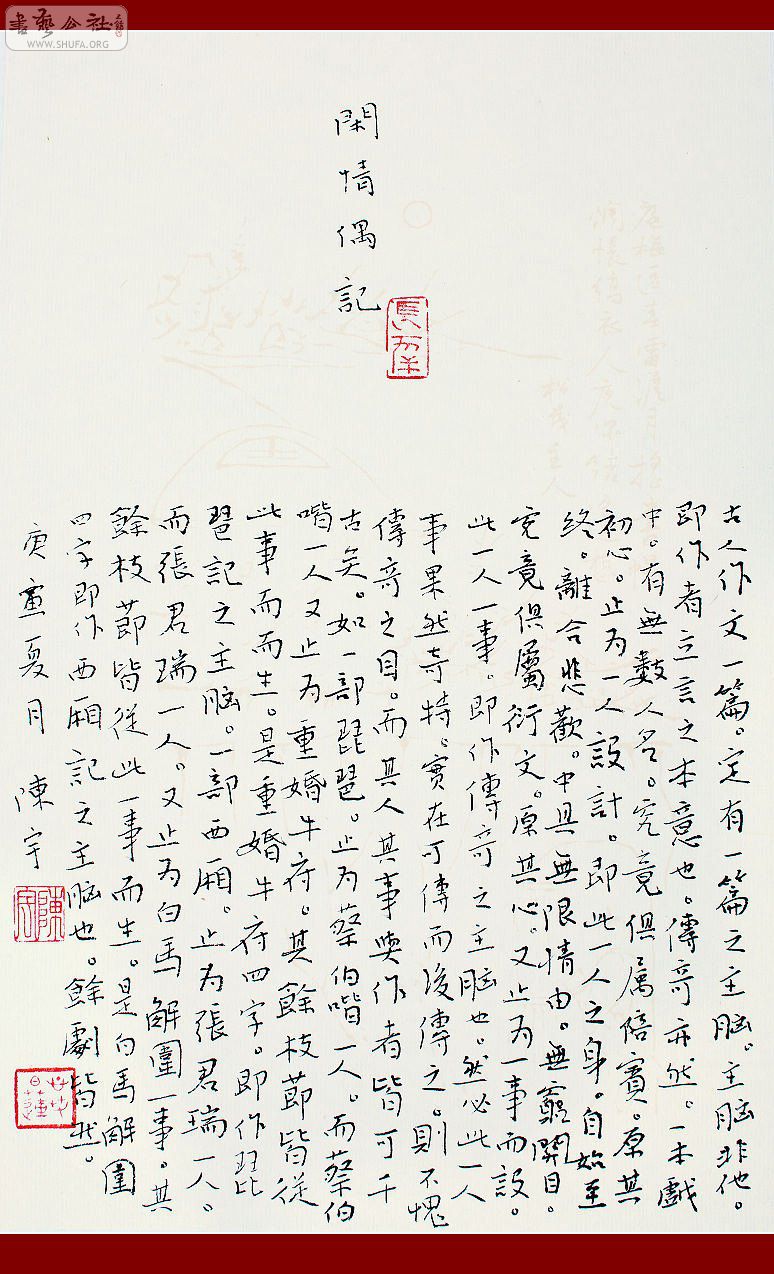 書藝公社
WWW.SHUFA.ORG
閑情偶記
古人作文一篇。定有一篇之主脑。主脑非他。
即作者立言之本意也。傳奇亦然。一本戲
中。有無數人名。究竟俱属陪賓。原其
初心。止为一人設計。即此一人之身。自始至
终。離合悲歡。中具無限情由。無窮関目。
究竟俱屬衍文。原其心。又止为一事而設。
此一人一事。即作傳奇之主脑也。然必此一人
事果然奇特。實在可傳而後傳之。則不愧
傳奇之目。而其人其事與作者皆可千
古矣。如一部琵琶。止为蔡伯喈一人。而蔡伯
喈一人又止为重婚牛府。其餘枝節皆從
此事而而生。是重婚牛府四字。即作琵
琶記之主脑。一部西厢。止为張君瑞一人。
而張君瑞一人。又止为白馬解圍一事。其
餘枝節皆從此一事而生。是白馬解圍
四字即作西厢記之主脑也。餘劇皆然。
庚寅夏月 陳宇